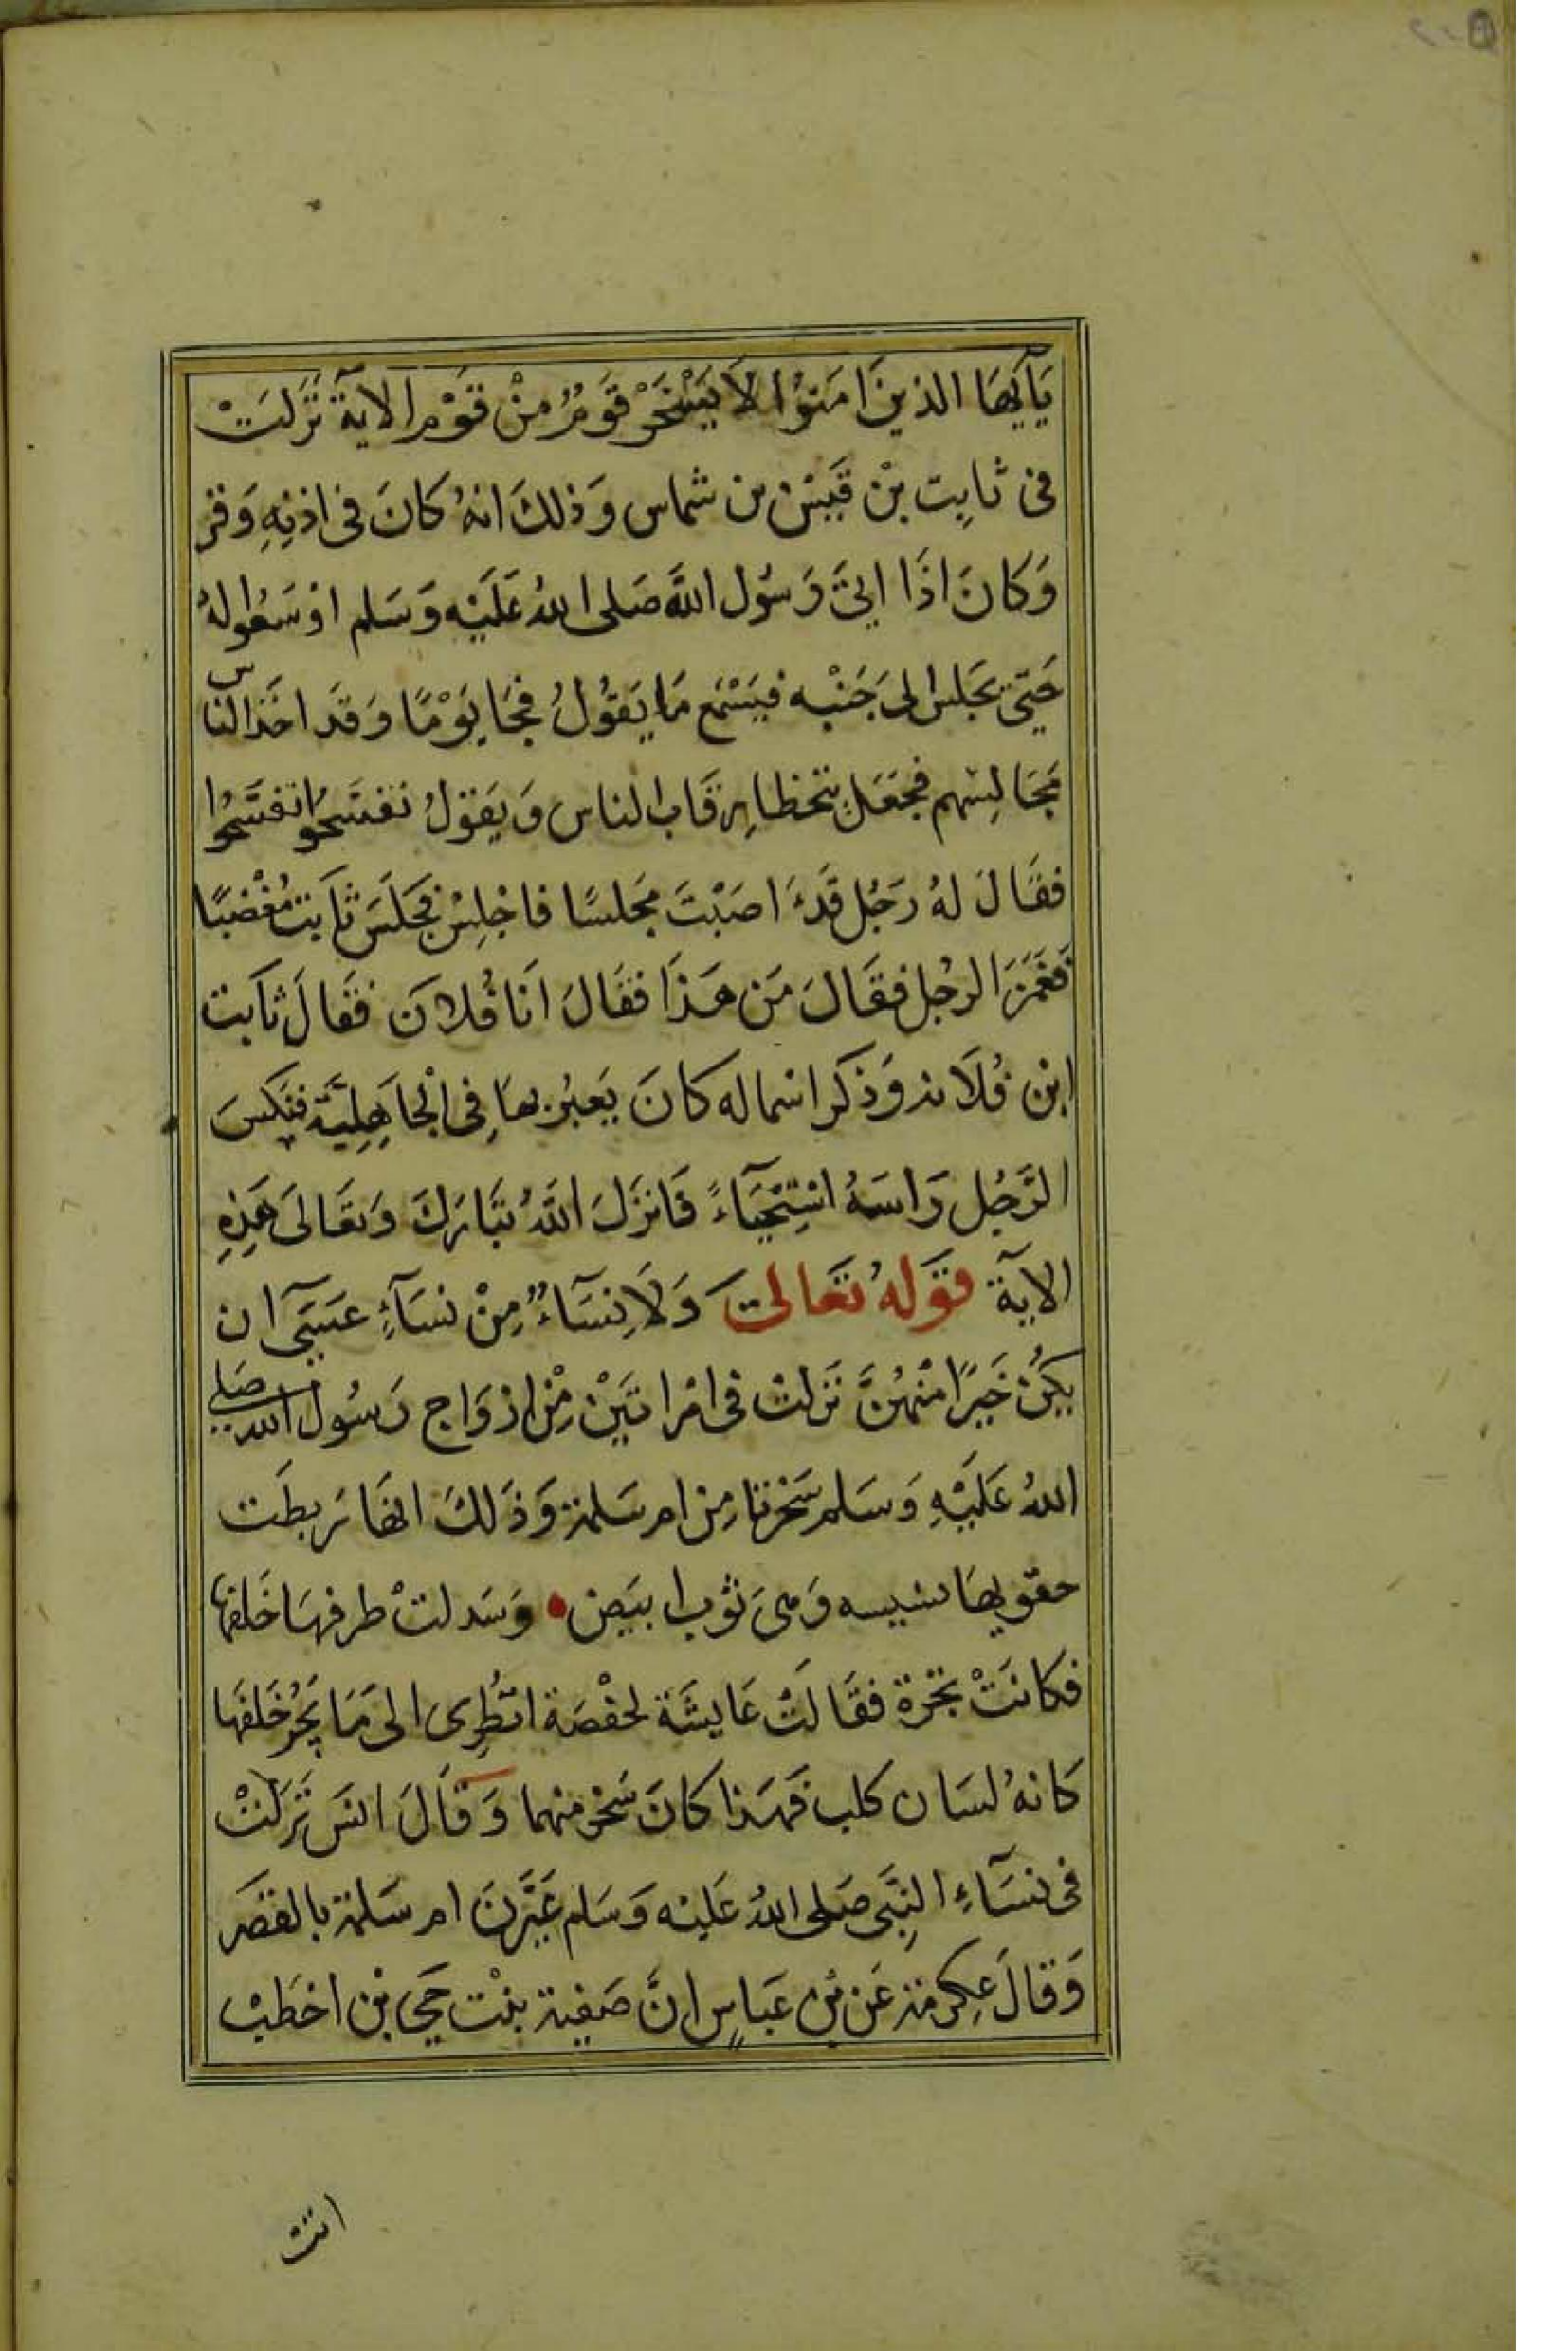 يَآيهَا الذينَ امَنوُا لَا يَسْخَرْ قوَمُرٌ مِنْ قوَمْ الايةَ نَزلَتْ
فى ثابِت بْن قَيسْ بن شماس وَذلكَ انهُ كانَ فى اذنِهِ وَقر
وَكانَ اذَا اتىَ رَسُول اللهَ صَلى اللهُ عَليَهْ وَسَلم اوْسَعُوا لهُ
حَتىَ يجَلس الىَ جَنْبه فيَسْمَع مَا يَقوُلُ فجَا يَوْمًا وَقَد اخَذ الناس
مَجَالِسَهم فجَعَل يتخطا رقَاب الناس وَيَقوُلُ تفسَحُوا تفسَحُوا
فقَالَ لهُ رَجُل قَدَ اصَبْتَ مجَلسًا فاجْلِسْ فجَلَسَ ثاَبت مُغْضبًا
فغَمَزَ الرجُل فقَالَ مَن هَذَا فقَالَ انَا فُلانَ فقَالَ ثاَبت
ابْن فُلَانه وَذكَر اسما له كانَ يَعيرُ بهَا فِى الْجاَهِليَّة فنَكسَ
الرَّجُل رَاسَهُ اسْتِحْيَآءً فَانزَلَ اللهُ تبَارَكَ وَتعَالىَ هَذِهِ
الآية قوَلهُ تعَالىَ وَلَا نِسَآءٌ مِنْ نسَآءٍ عَسَىَ ان
يكَنَّ خَيرًا منْهُنَّ نَزلتْ فى امْراتَيَنْ مِنْ ازوَاج رَسُول الله صَلى
اللهُ عَليَهِ وَسَلم سَخرتا مِن ام سَلمة وَذَلكَ انهَا رَبطَت
حقويهَا بسبيبه وَهىَ ثوْب ابيَض وَسَدلتْ طرفهَا خَلفهَا
فكانتْ تجرّهُ فقَالَتْ عَايشَة لحفْصَة انظُرِى الى مَا تجَرُ خَلفَهَا
كانهُ لسَان كلب فهَذا كانَ سَخر منهما وَقالَ انسَ نَزلَتْ
فى نسَآءِ النبِّى صَلى اللهُ عَليه وَسَلم عَيَّرنَ ام سَلمة بالقصَر
وَقالَ عِكرمَة عَن بْن عَباسٍ انَّ صَفيِة بنْت حَيى بْن اخطَبْ
اتت